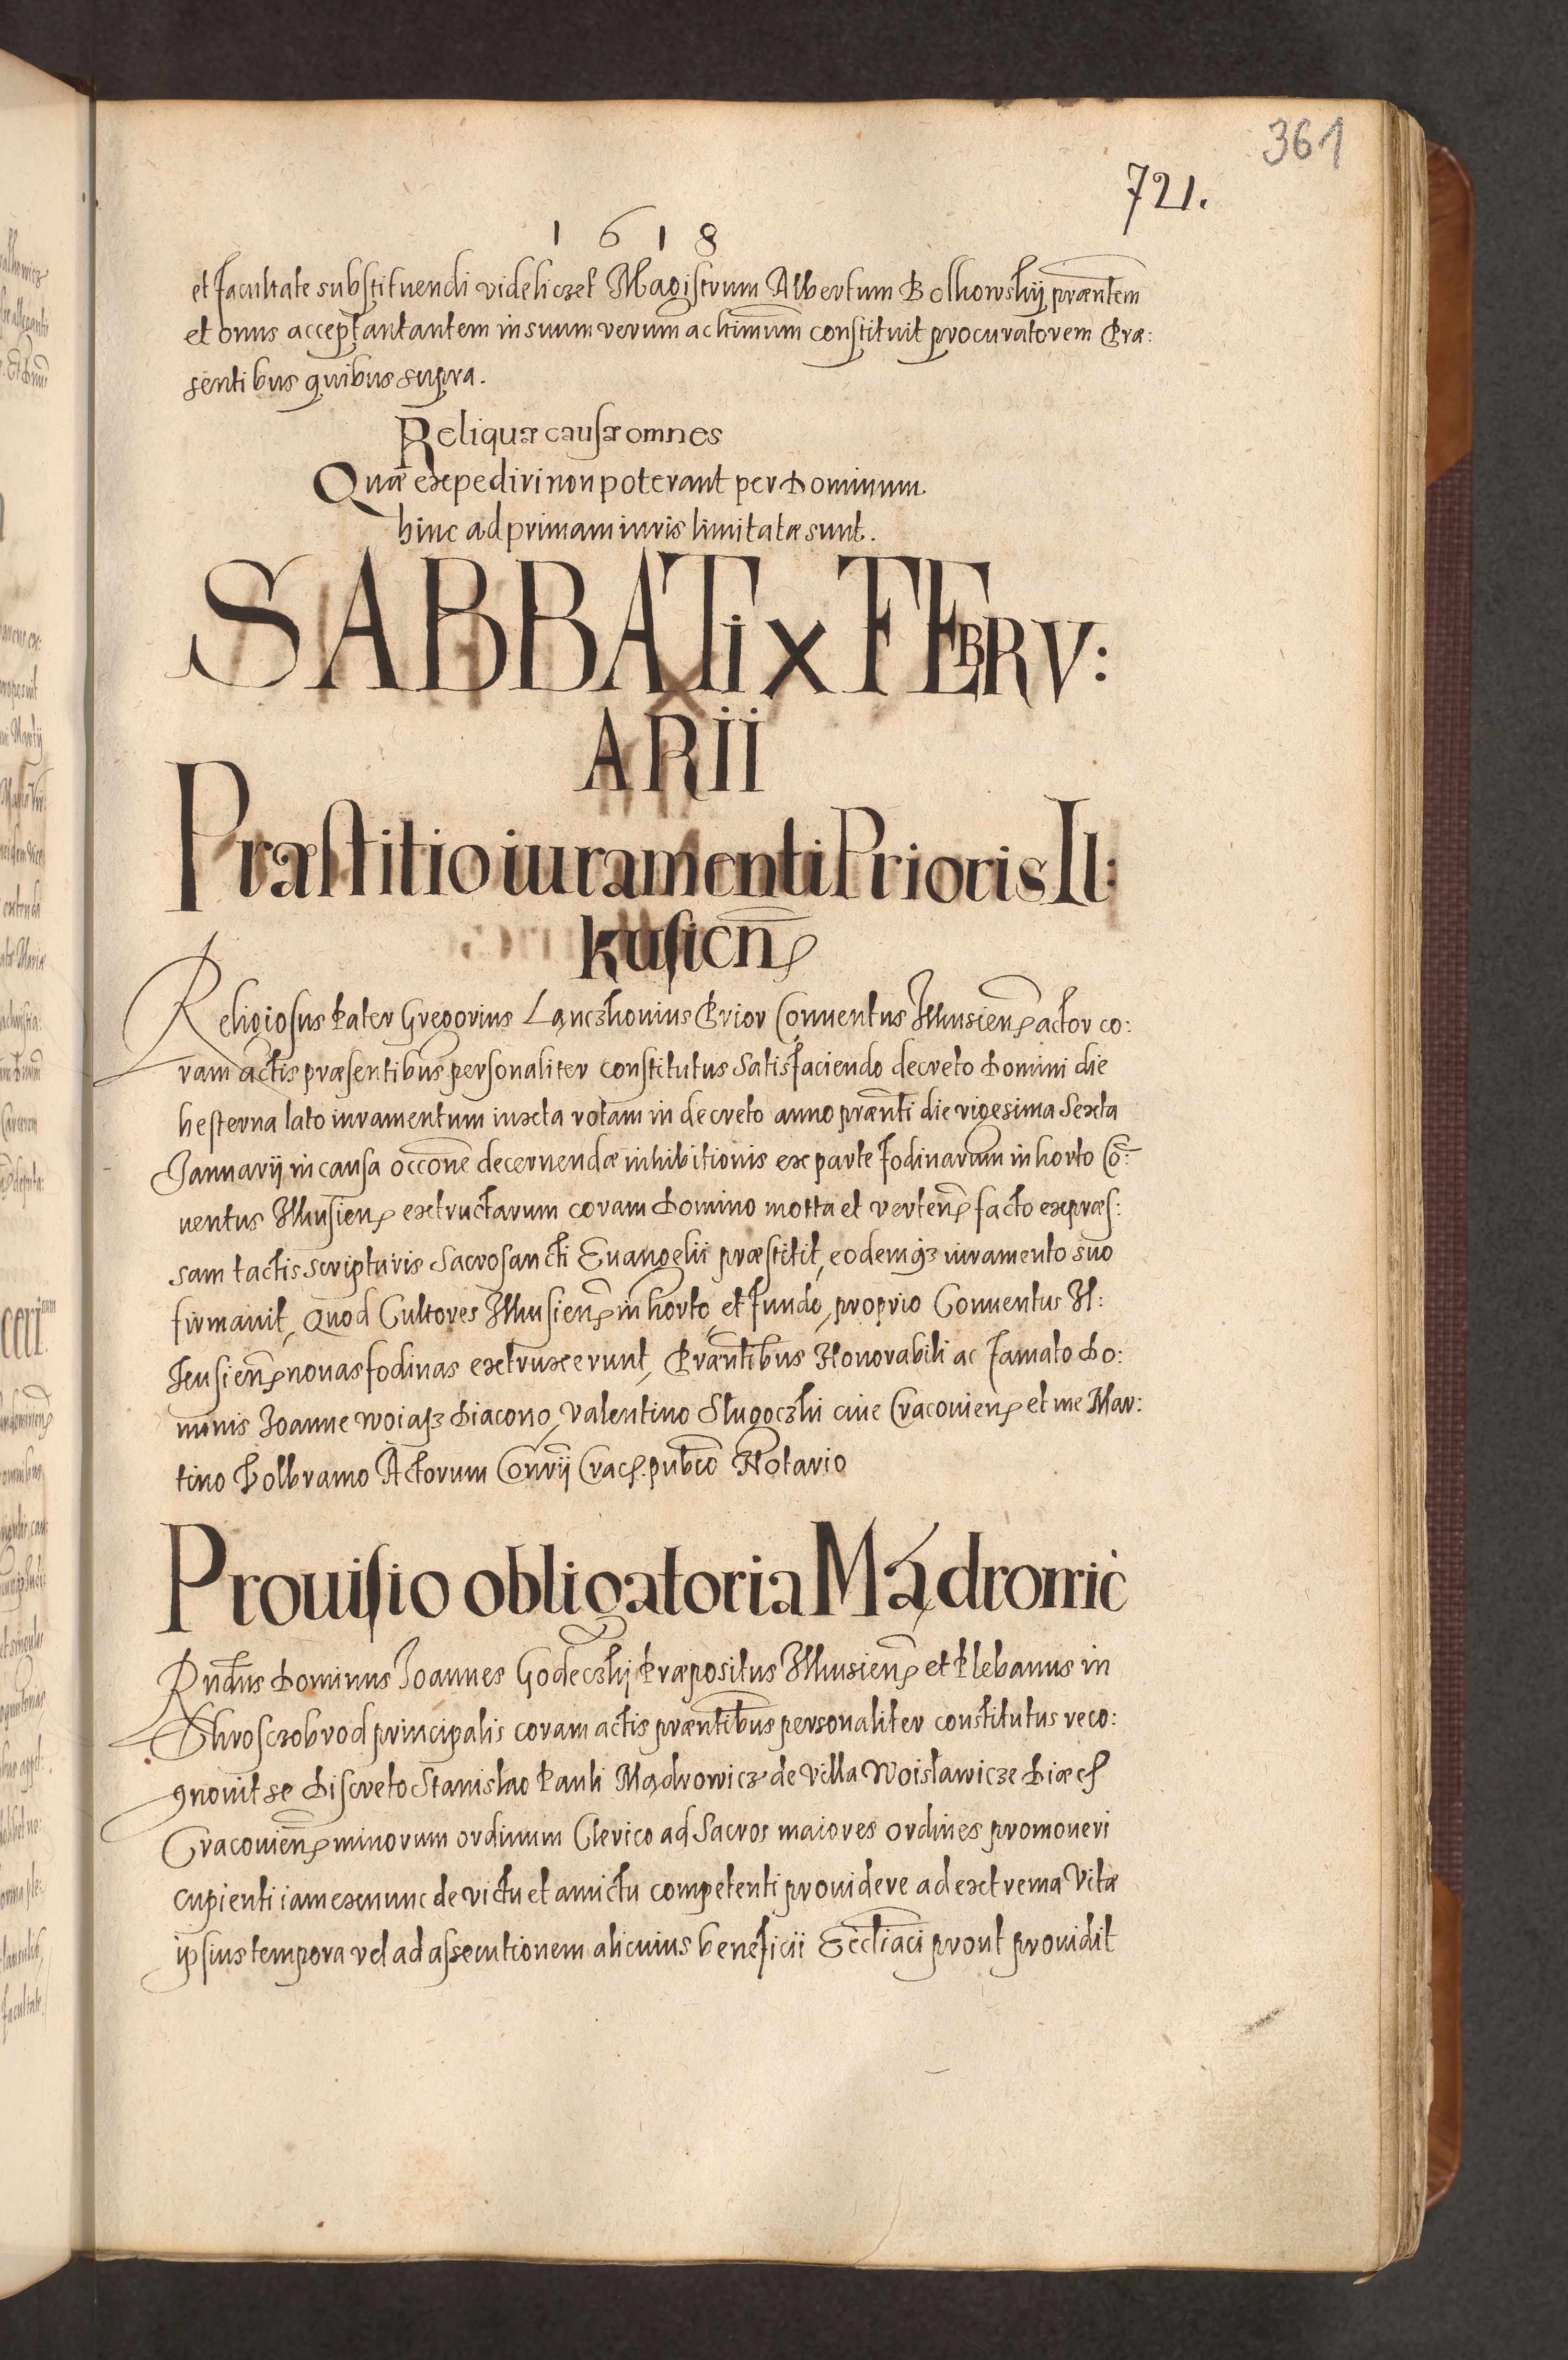 361
721.
1618
et facultate substituendi videliczet Magistrum Albertum Bolhowskij præntem
et onus acceptantantem in suum verum ac ltimum constituit procuratorem Præ:
sentibus quibus supra.
Reliquæ causæ omnes
Quæ expediri non poterant per Dominum
hinc ad primam iuris limitatæ sunt.
SABBATi X FEBRV:
ARII
Præstitio iuramenti Prioris Il:
kusien
Religiosus Pater Gregorius Lączkouius Prior Conuentus Ilkusien actor co:
ram actis præsentibus personaliter constitutus Satisfaciendo decreto Domini die
hesterna lato iuramentum iuxta rotam in decreto anno prænti die vigesima Sexta
Januarij in causa occone decernendæ inhibitionis ex parte fodinarum in horto Co:
uentus Ilkusien extructarum coram Domino mota et verten facto expræs:
sam tactis scripturis Sacrosancti Euangelii præstitit, eodemq iuramento suo
firmauit, Quod Cultores Ilkusien in horto, et fundo, proprio Conuentus Il:
kusien nouas fodinas extruxerunt, Præntibus Honorabili ac famato Do:
minis Joanne Woiasz Diacono, Valentino Slugoczki ciue Cracouien et me Mar:
tino Dolbramo Actorum Conrij Crac. pubco Notario
Prouisio obligatoria Mądrouic
Rndus Dominus Joannes Godeczkij Præpositus Ilkusien et Plebanus in
Chrosczobrod principalis coram actis præntibus personaliter constitutus reco:
gnouit se Discreto Stanislao Pauli Mądrowicz de Villa Woislawicze Diæc
Cracouien minorum ordinum Clerico ad Sacros maiores ordines promoueri
cupienti iam ex nunc de victu et amictu competenti prouidere ad extrema Vitæ
ipsius tempora vel ad assecutionem alicuius beneficii Eccliaci prout prouidit